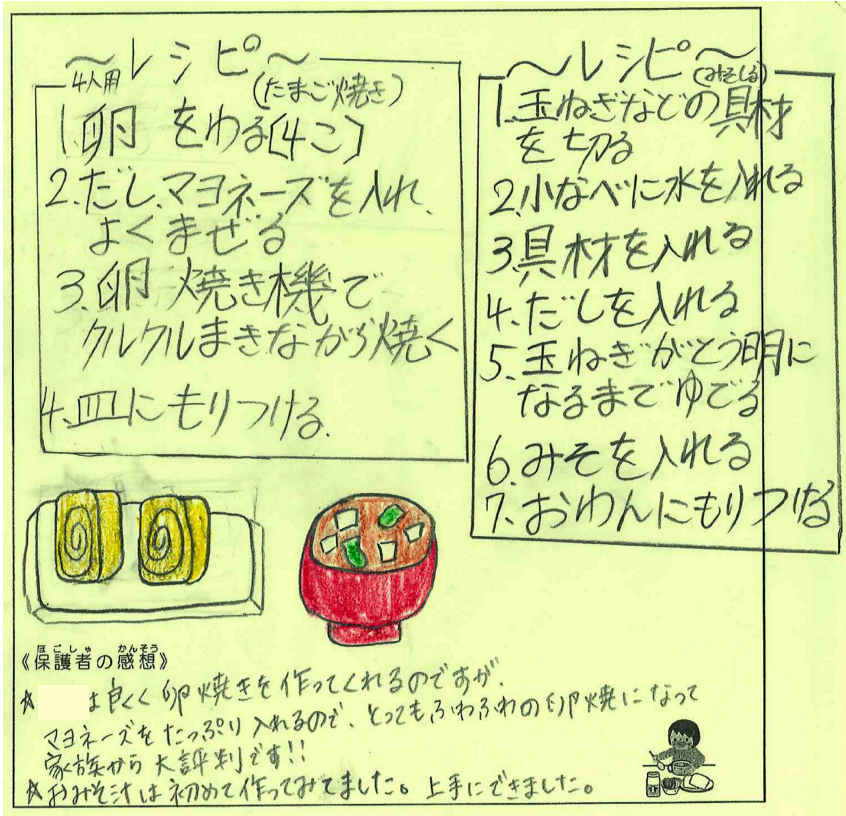 ～レシピ～
4人用
(たまご焼き)
1.卵をわる(4こ)
2.だし、マヨネーズを入れ、
よくまぜる
3.卵焼き機で
クルクルまきながら焼く
4.皿にもりつける.
～レシピ～
(みそしる)
1.玉ねぎなどの具材
を切る
2.小なべに水を入れる
3.具材を入れる
4.だしを入れる
5.玉ねぎがとう明に
なるまでゆでる
6.みそを入れる
7.おわんにもりつける
ほごしゃ かんそう
《保護者の感想》
☆ は良くく卵焼きを作ってくれるのですが、
マヨネーズをたっぷり入れるので、とってもふわふわの卵焼になって
家族から大評判です!!
☆おみそ汁は初めて作ってみてました。上手にできました。